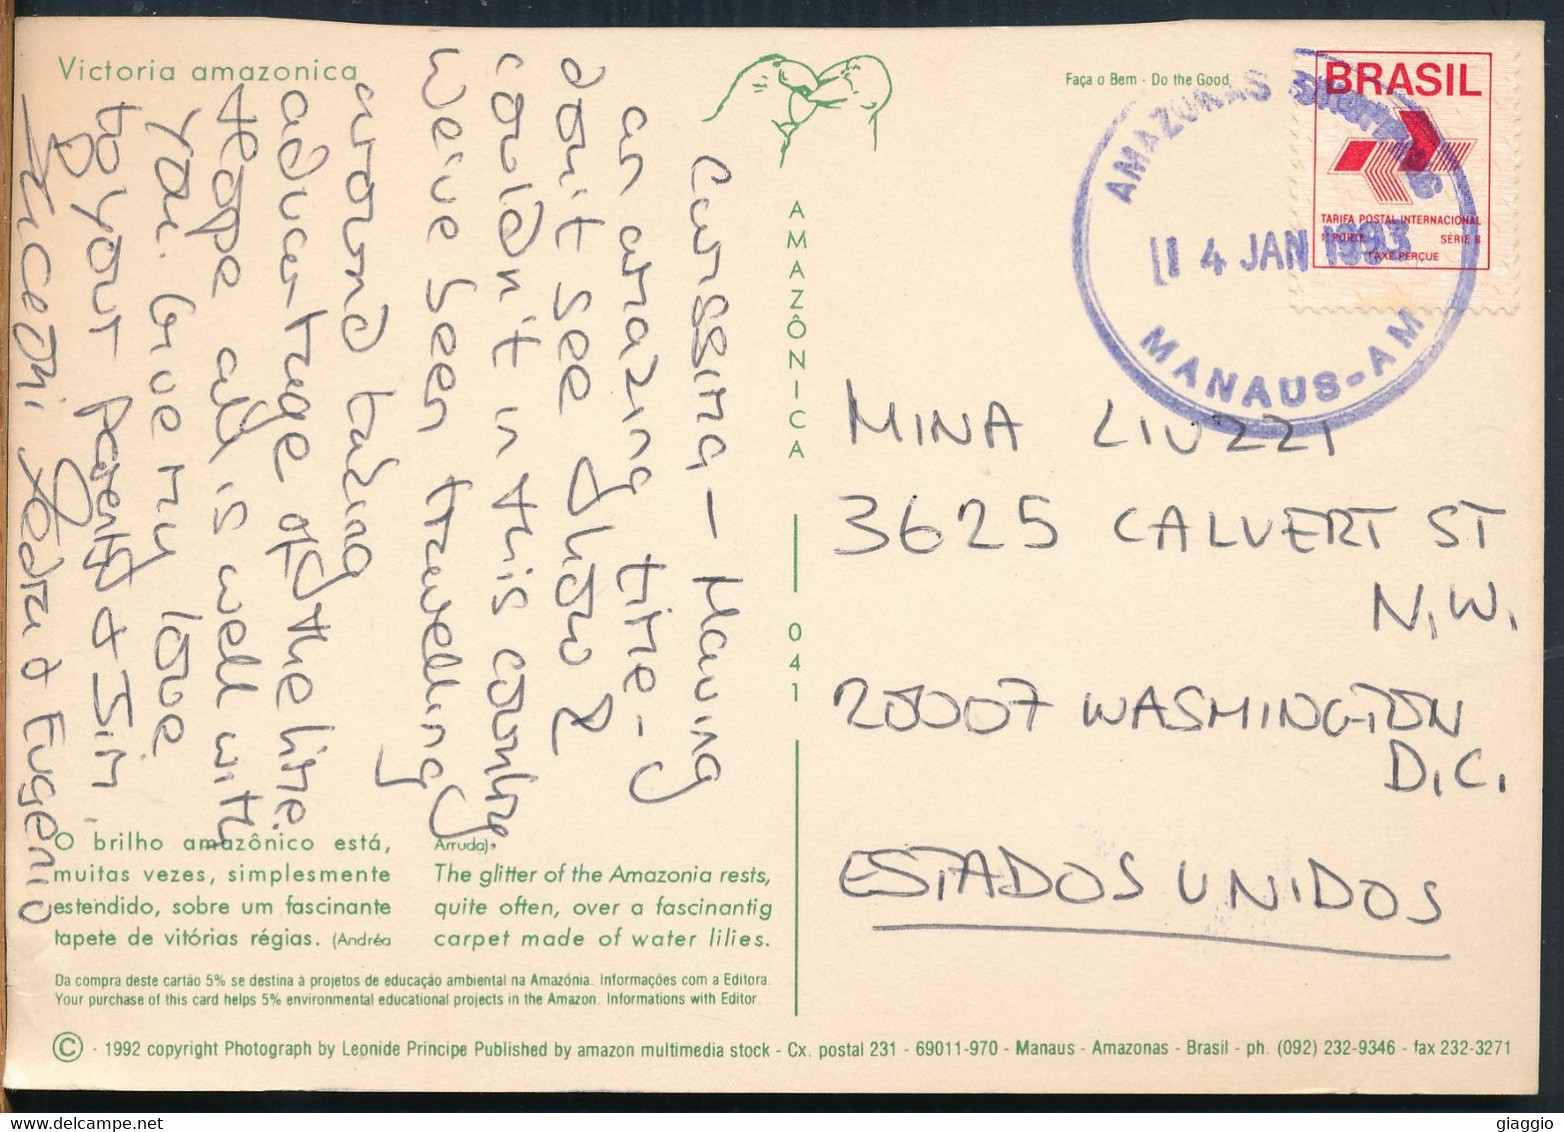 Victoria amazonica
Faça o Bem - Do the Good
BRASIL
TARIFA POSTAL INTERNACIONAL
1º PORTE SÉRIE B
TAXE PERÇUE
AMAZONAS
14 JAN 1993
MANAUS-AM
AMAZÔNICA 041
Cugsima — Having
an amazing time - y
don't see how 2
couldn't in this country
We've been travelling
around taking
advantage of the time.
Hope all is well with
you. Give my love
to your parents & Jim.
Baceoni Sara & Eugenio
MINA LIUZZI
3625 CALVERT ST
N.W.
20007 WASHINGTON
D.C.
ESTADOS UNIDOS
O brilho amazônico está,
muitas vezes, simplesmente
estendido, sobre um fascinante
tapete de vitórias régias. (Andréa
Arruda).
The glitter of the Amazonia rests,
quite often, over a fascinantig
carpet made of water lilies.
Da compra deste cartão 5% se destina à projetos de educação ambiental na Amazônia. Informações com a Editora.
Your purchase of this card helps 5% environmental educational projects in the Amazon. Informations with Editor.
© - 1992 copyright Photograph by Leonide Principe Published by amazon multimedia stock - Cx. postal 231 - 69011-970 - Manaus - Amazonas - Brasil - ph. (092) 232-9346 - fax 232-3271
giaggio